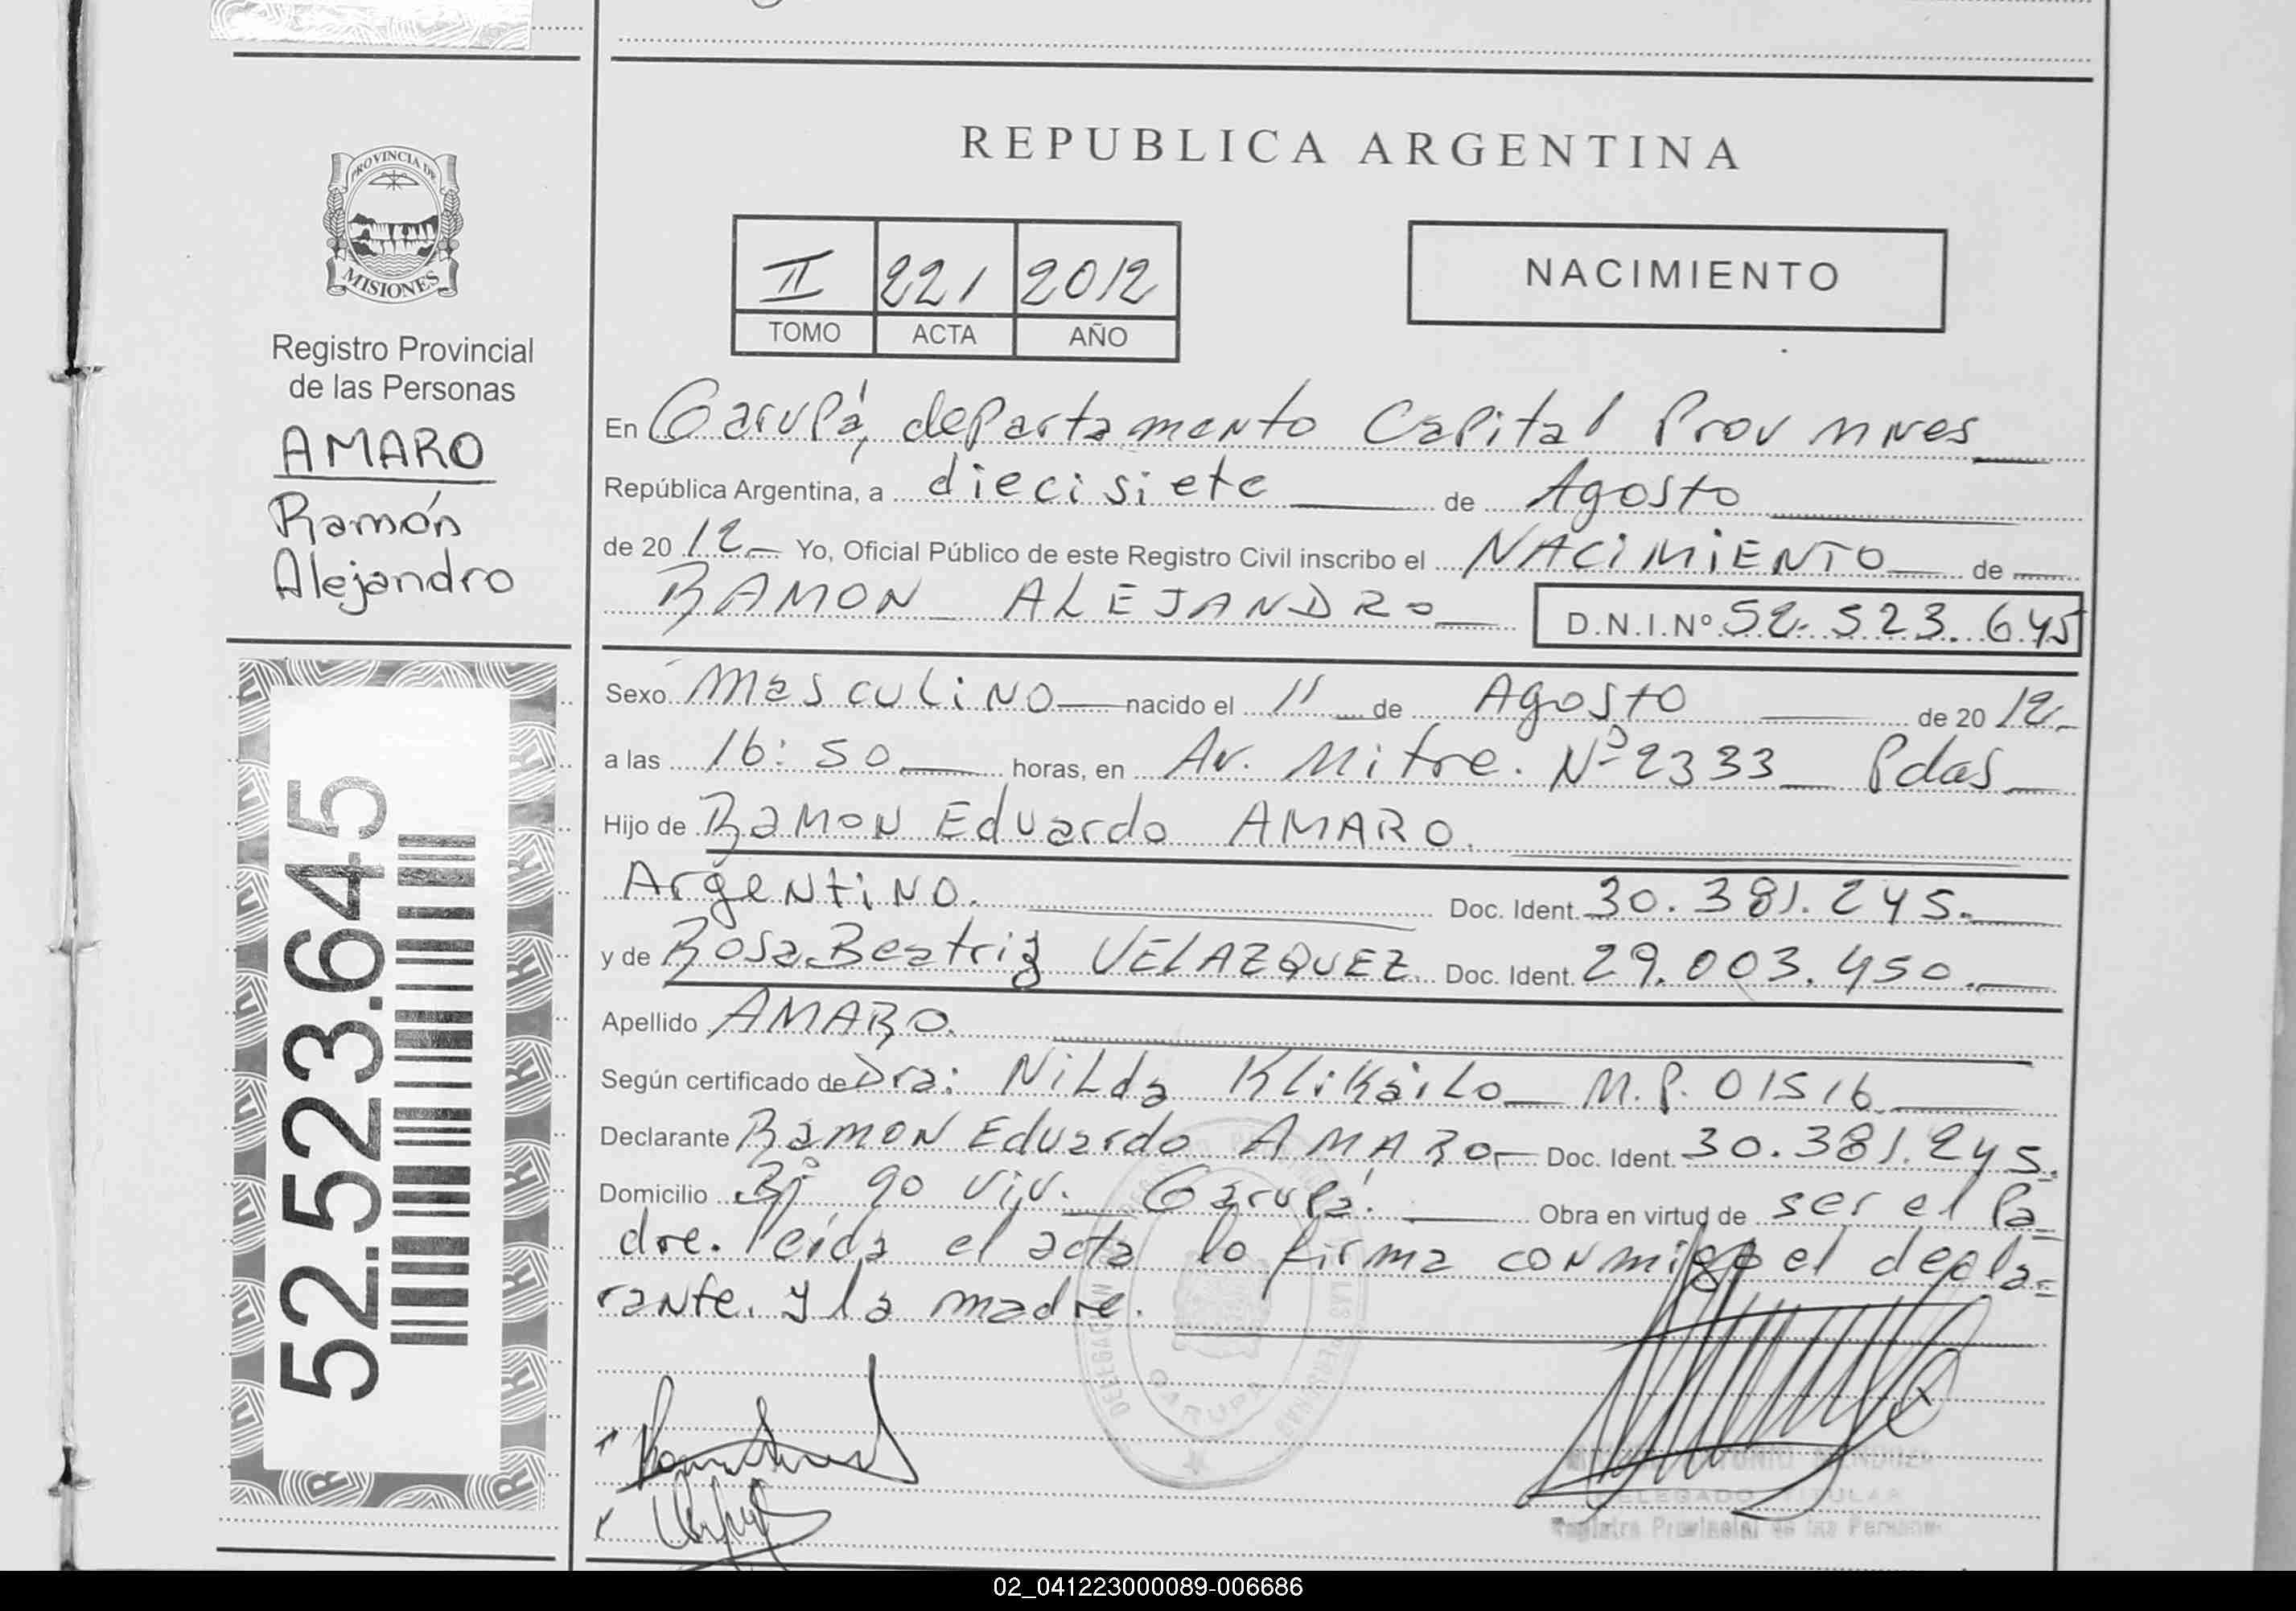 REPUBLICA ARGENTINA
PROVINCIA DE
MISIONES
Registro Provincial
de las Personas
AMARO
Ramón
Alejandro
52.523.645
II 221 2012
TOMO ACTA AÑO
NACIMIENTO
En Garupá, departamento Capital Prov Mnes
República Argentina, a diecisiete de Agosto
de 2012 Yo, Oficial Público de este Registro Civil inscribo el NACIMIENTO de
RAMON ALEJANDRO D.N.I.Nº 52.523.645
Sexo Masculino nacido el 11 de Agosto de 2012
a las 16:50 horas, en Av. Mitre. Nº 2333 Pdas
Hijo de Ramon Eduardo AMARO.
Argentino. Doc. Ident. 30.381.245.
y de Rosa Beatriz VELAZQUEZ Doc. Ident. 29.003.450.
Apellido AMARO.
Según certificado de Dra: Nilda Klikailo M.P. 01516
Declarante Ramon Eduardo AMARO Doc. Ident. 30.381.245.
Domicilio Bº 90 Viv. Garupá. Obra en virtud de ser el Pa
dre. leída el acta lo firma conmigo el decla-
rante. y la madre.
GARUPA
DELEGADO TITULAR
Registro Provincial de las Personas
02_041223000089-006686